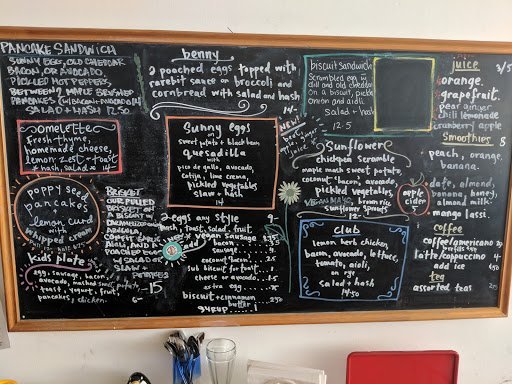 PANCAKE SANDWICH
SUNNY EGG, OLD CHEDDAR
BACON, OR AVOCADO,
PICKLED HOT PEPPERS,
BETWEEN 2 MAPLE BRUSHED
PANCAKES
SALAD + HASH 12.50
omelette
fresh-thyme,
homemade cheese,
lemon zest + toast
+ hash, salad 14
poppy seed
pancakes
lemon curd
with
whipped cream
kids plate
egg, sausage, bacon,
avocado, mashed sweet potato,
toast, yogurt, fruit,
pancakes, chicken. 6-
BRISKET
OUR PULLED
BRISKET ON
A BISCUIT w.
CARAMELIZED
ONIONS,
GARLIC
AIOLI,
w. SALAD OR
SLAW +
POTATOES
-15
benny
2 poached eggs topped with
rarebit sauce w broccoli and
cornbread with salad and hash
14
Sunny eggs
sweet potato + black bean
quesadilla
with
pico de gallo, avocado
cotija, lime crema,
pickled vegetables
slaw + hash
14
2 eggs any style 9-
hash, toast, salad, fruit
vegan sausage
bacon
sausage
coconut bacon 2.5
sub biscuit for toast
cheese or avocado
extra egg
biscuit + cinnamon
butter
syrup
NEW!
biscuit sandwich
scrambled egg w
dill and old cheddar
on a biscuit, pickled
onion and aioli
salad + hash
12.5
Sunflower
chickpea scramble
maple mash sweet potato,
coconut "bacon", avocado
pickled vegetables
brown rice
sunflower sprouts
12-
club
lemon herb chicken,
bacon, avocado, lettuce,
tomato, aioli,
on rye
salad + hash
14.50
juice 3/5
orange,
grapefruit.
pear ginger
chili lemonade
cranberry apple
smoothies 8
peach, orange,
banana.
date, almond,
banana, honey,
almond milk.
mango lassi.
apple
cider
coffee
coffee/americano
latte/cappuccino 4-
add ice
tea
assorted teas